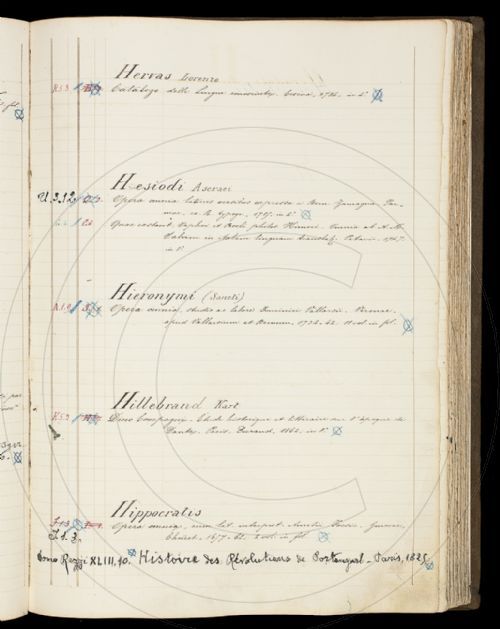 Hervas Lorenzo
Catalogo delle lingue conosciute. Cesena, 1784. in 4°
Hesiodi Ascraei
U.3.12 Opera omnia latinis versibus expressa a Bern. Zamagna. Par-
mae, ex R. typogr., 1797. in 4°
Quae exstant, Orphei et Procli philos. Hymni. Omnia ab A. M.
Salvini in italam linguam translata. Patavii, 1747.
in 8°
Hieronymi (Sancti)
Opera omnia, studio ac labore Dominici Vallarsii. Veronae,
apud Vallarsium et Bernum. 1734-42. 11 vol. in fol.
Hillebrand Karl
Dino Compagni. Etude historique et littéraire sur l'époque de
Dante. Paris, Durand, 1862. in 8°
Hippocratis
Opera omnia, cum lat. interpret. Genevae,
Chouet, in fol.
I.1.3.
XLIII, 10. Histoire des Révolutions de Portugal - Paris, 1825